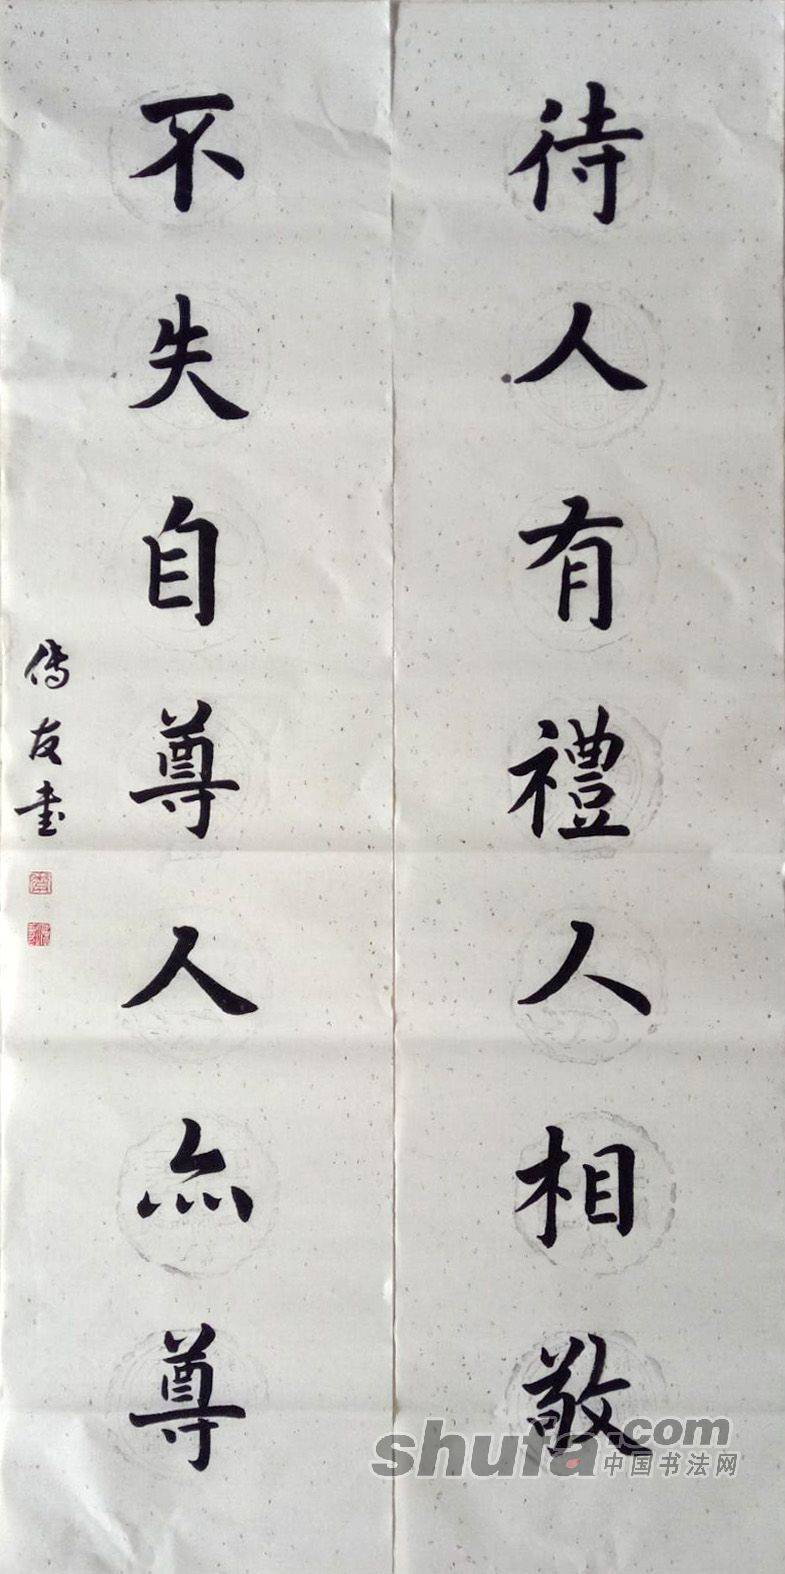 待人有禮人相敬
不失自尊人亦尊
傳友書
shufa.com
中国书法网